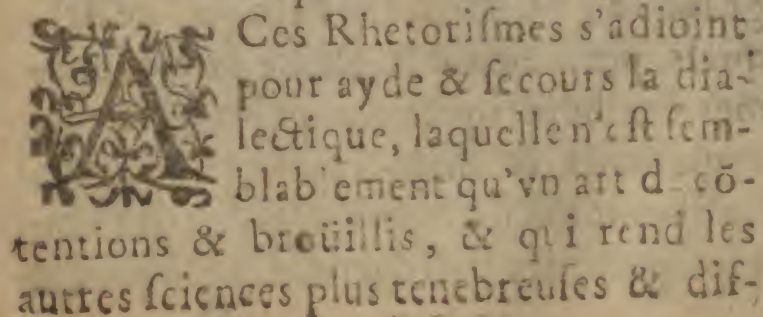 A Ces Rhetoriſmes s'adioint
pour ayde & ſecours la dia-
lectique, laquelle n'eſt ſem-
blablement qu'vn art d cō-
tentions & broüillis, & qui rend les
autres ſciences plus tenebreuſes & dif-